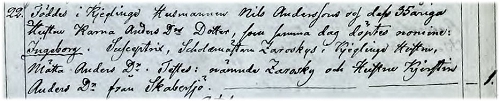 22. Föddes i Kjeflinge Husmannen Nils Anderssons och dess 35 åriga
Hustru Karna Anders Dr Dotter, som samma dag döptes nomine:
Ingeborg. Susceptrix, Scholmästan Zaroskys i Kjeflinge Hustru,
Mätta Anders Dr. Testes: nämnde Zarosky och Hustru Kjerstin
Anders Dr från Skabersjö. 1.